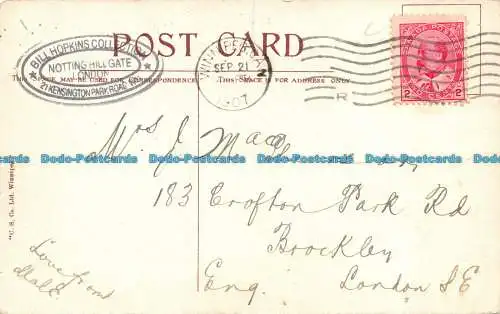 POST CARD
BILL HOPKINS COLLECTION
NOTTING HILL GATE
LONDON
21 KENSINGTON PARK ROAD W11
THIS SPACE MAY BE USED FOR CORRESPONDENCE.
THIS PLACE IS FOR ADDRESS ONLY
SEP 21
1907
R
2 2
Mrs J.
183 Crofton Park Rd
Brockley
London S E
Eng.
Love from
Dodo-Postcards Dodo-Postcards Dodo-Postcards Dodo-Postcards Dodo-Postcards
"C. S. Co. Ltd. Winnipeg